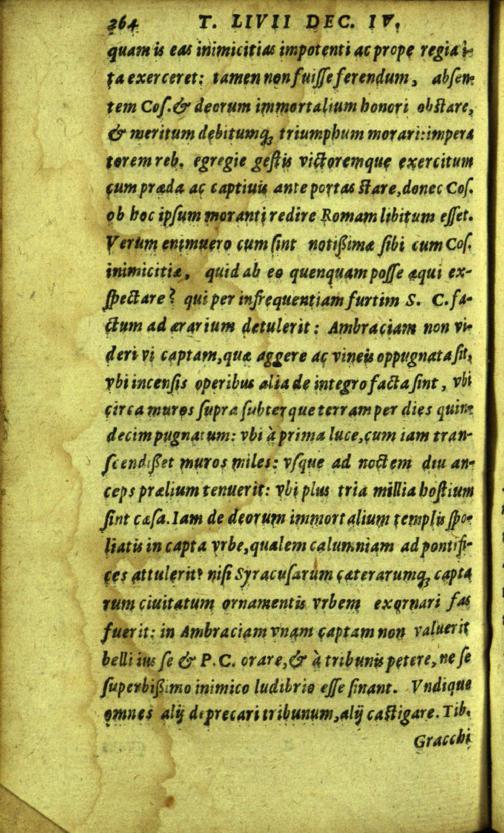 264 T. LIVII DEC. IV.
quam is eas inimicitias impotenti ac prope regia i-
ta exerceret: tamen non fuisse ferendum, absen-
tem Cos. & deorum immortalium honori obstare,
& meritum debitumq; triumphum morari: impera
torem reb. egregie gestis victoremque exercitum
cum præda ac captiuis ante portas stare, donec Cos.
ob hoc ipsum moranti redire Romam libitum esset.
Verum enimuero cum sint notißimæ sibi cum Cos.
inimicitiæ, quid ab eo quenquam posse æqui ex-
spectare? qui per infrequentiam furtim S. C. fa-
ctum ad ærarium detulerit: Ambraciam non vi-
deri vi captam, quæ aggere ac vineis oppugnata sit,
vbi incensis operibus alia de integro facta sint, vbi
circa muros supra subterque terram per dies quin-
decim pugnatum: vbi à prima luce, cum iam tran-
scendißet muros miles: vsque ad noctem diu an-
ceps prælium tenuerit: vbi plus tria millia hostium
sint cæsa. Iam de deorum immortalium templis spo-
liatis in capta vrbe, qualem calumniam ad pontifi-
ces attulerit? nisi Syracusarum cæterarumq; capta
rum ciuitatum ornamentis vrbem exornari fas
fuerit: in Ambraciam vnam captam non valuerit
belli ius se & P. C. orare, & à tribunis petere, ne se
superbißimo inimico ludibrio esse sinant. Vndique
omnes alij deprecari tribunum, alij castigare. Tib.
Gracchi